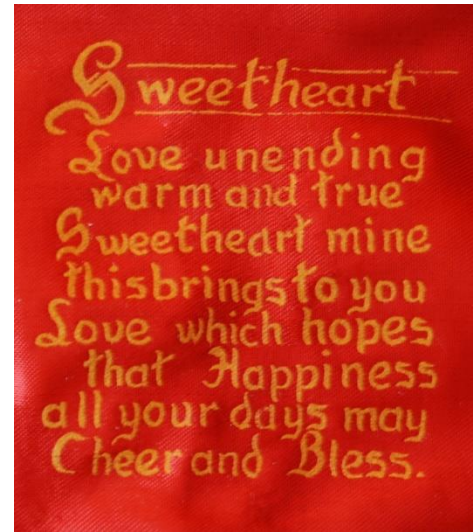 Sweetheart
Love unending
warm and true
Sweetheart mine
this brings to you
Love which hopes
that Happiness
all your days may
Cheer and Bless.